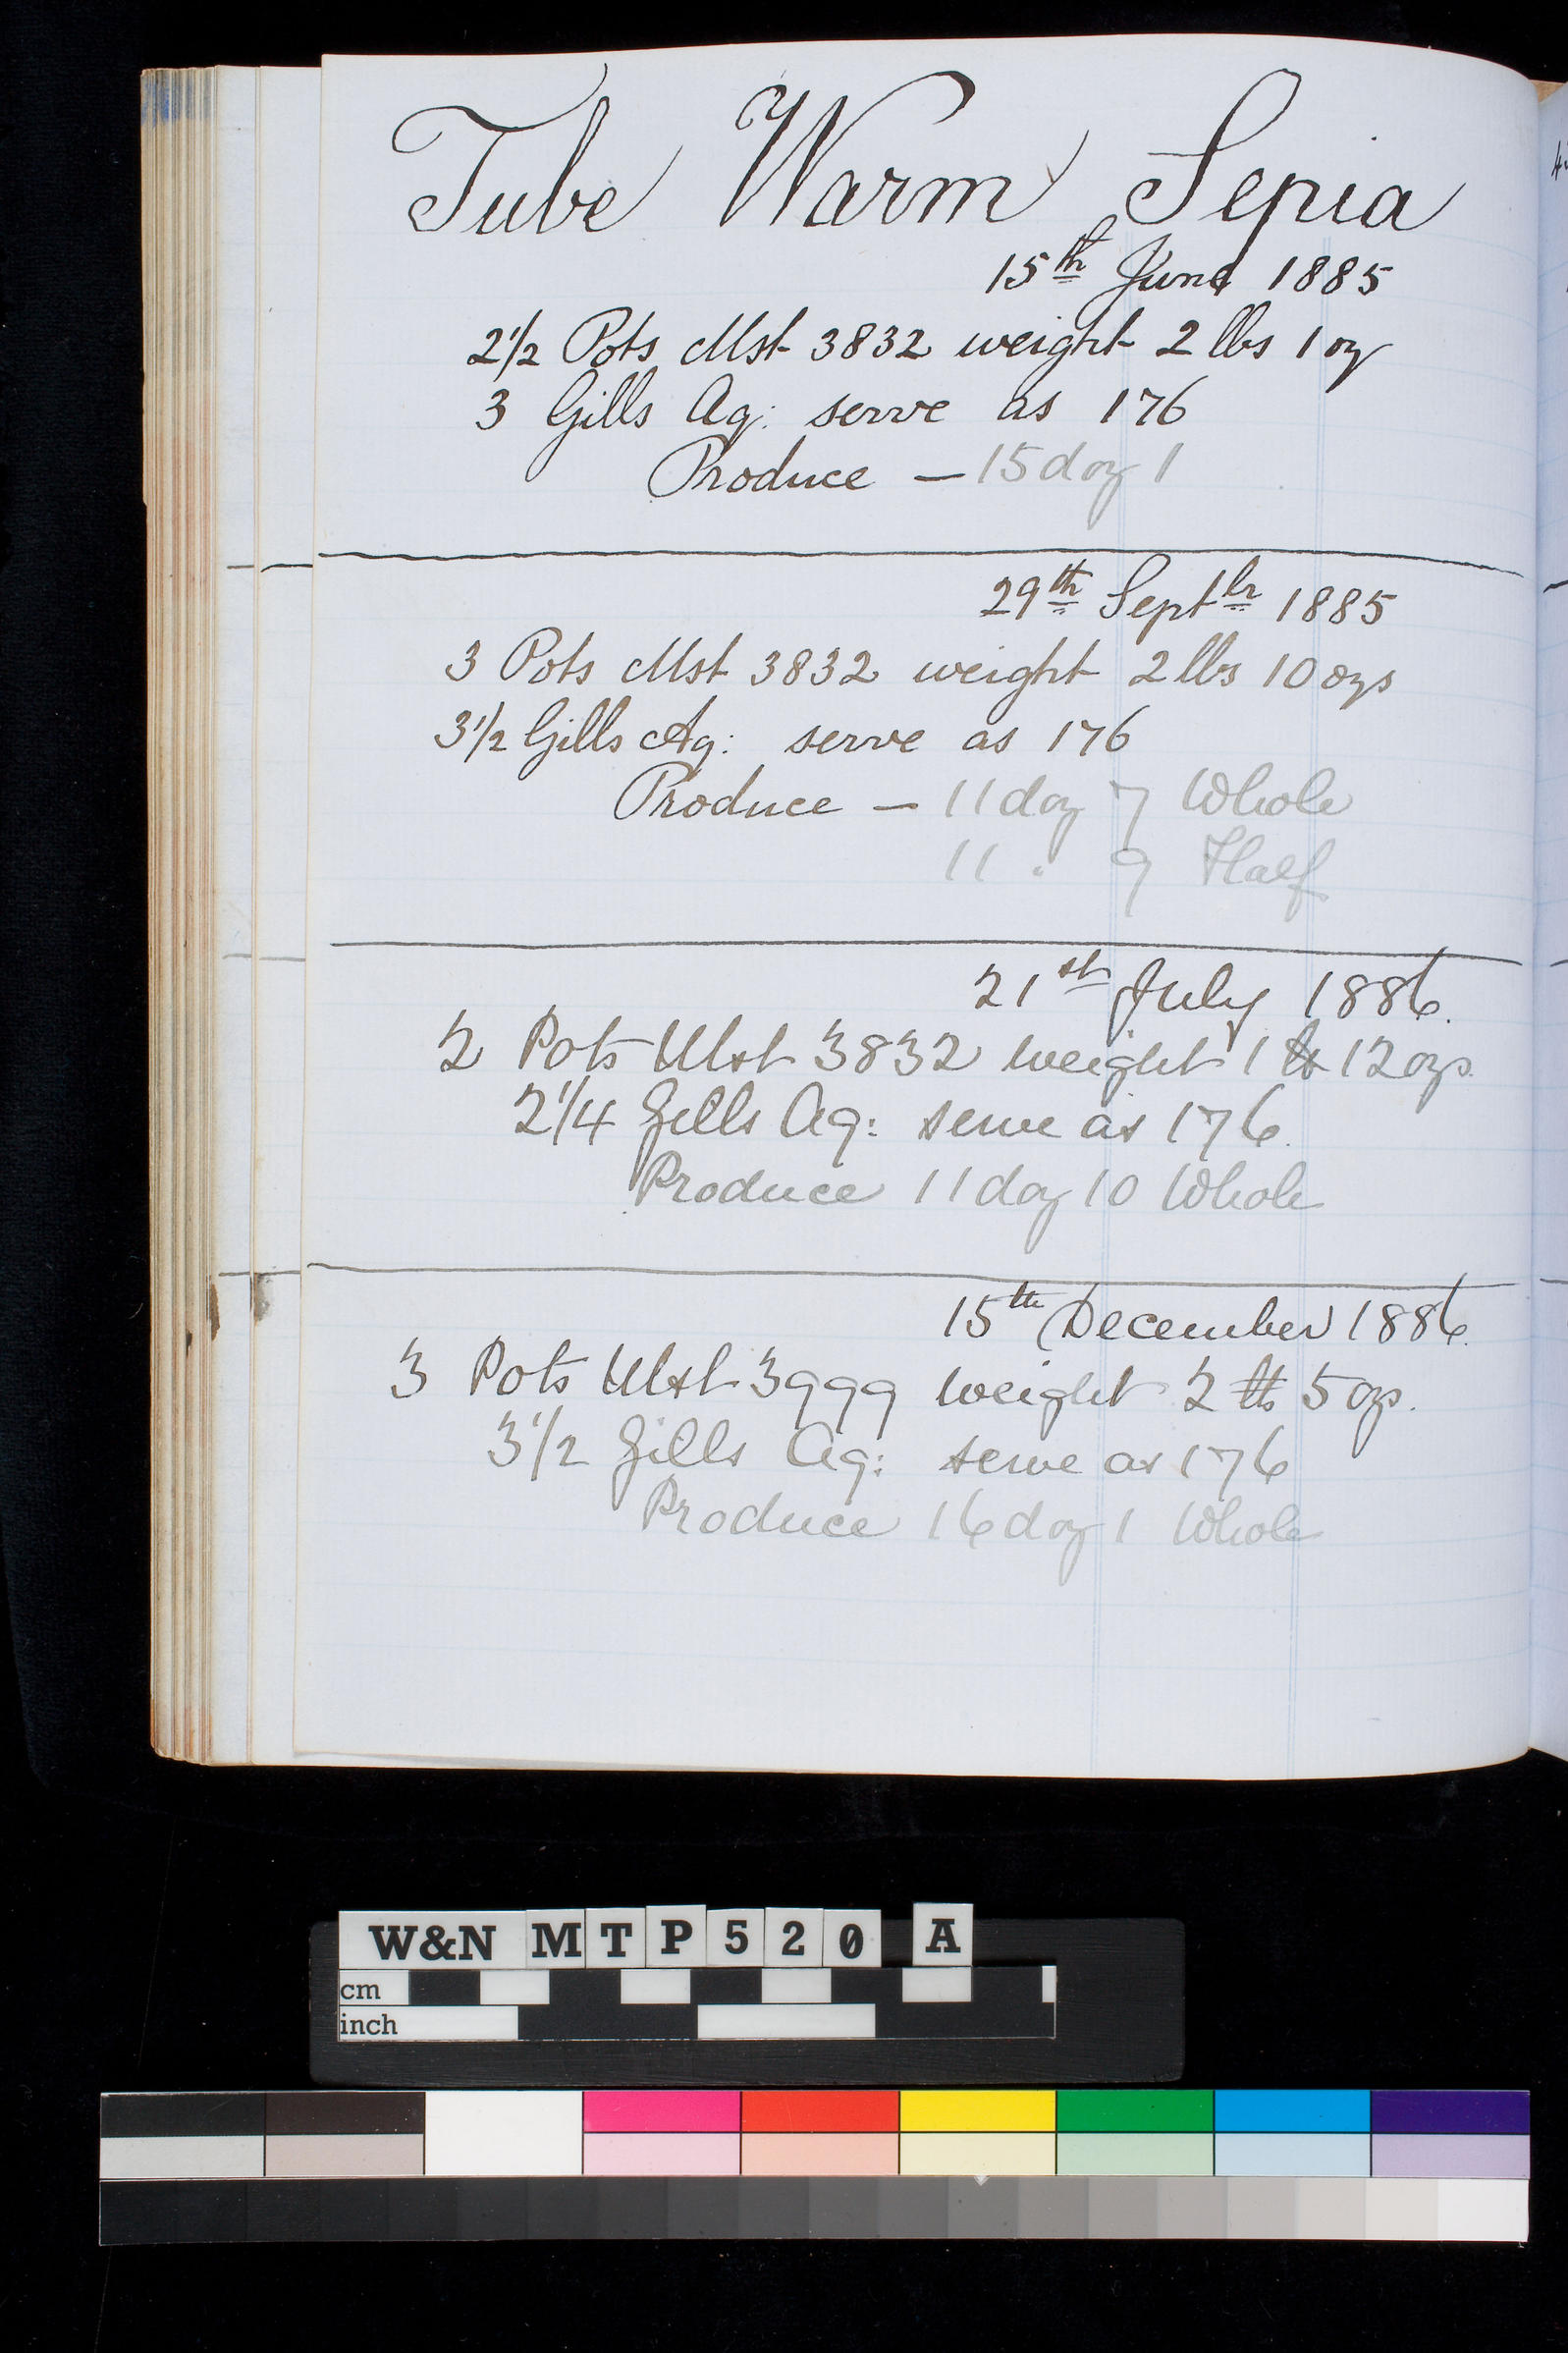 Tube Warm Sepia
15th June 1885
2 1/2 Pots Mst 3832 weight 2 lbs 1 oz
3 Gills Aq: serve as 176
Produce — 15 doz 1
29th Septbr 1885
3 Pots Mst 3832 weight 2 lbs 10 ozs
3 1/2 Gills Aq: serve as 176
Produce — 11 doz 7 Whole
11 " 9 Half
21st July 1886.
2 Pots Mst 3832 weight 1 lb 12 ozs.
2 1/4 Gills Aq: serve as 176.
Produce 11 doz 10 Whole
15th December 1886.
3 Pots Mst 3999 weight 2 lbs 5 ozs.
3 1/2 Gills Aq: serve as 176
Produce 16 doz 1 Whole
W&N MTP520 A
cm
inch